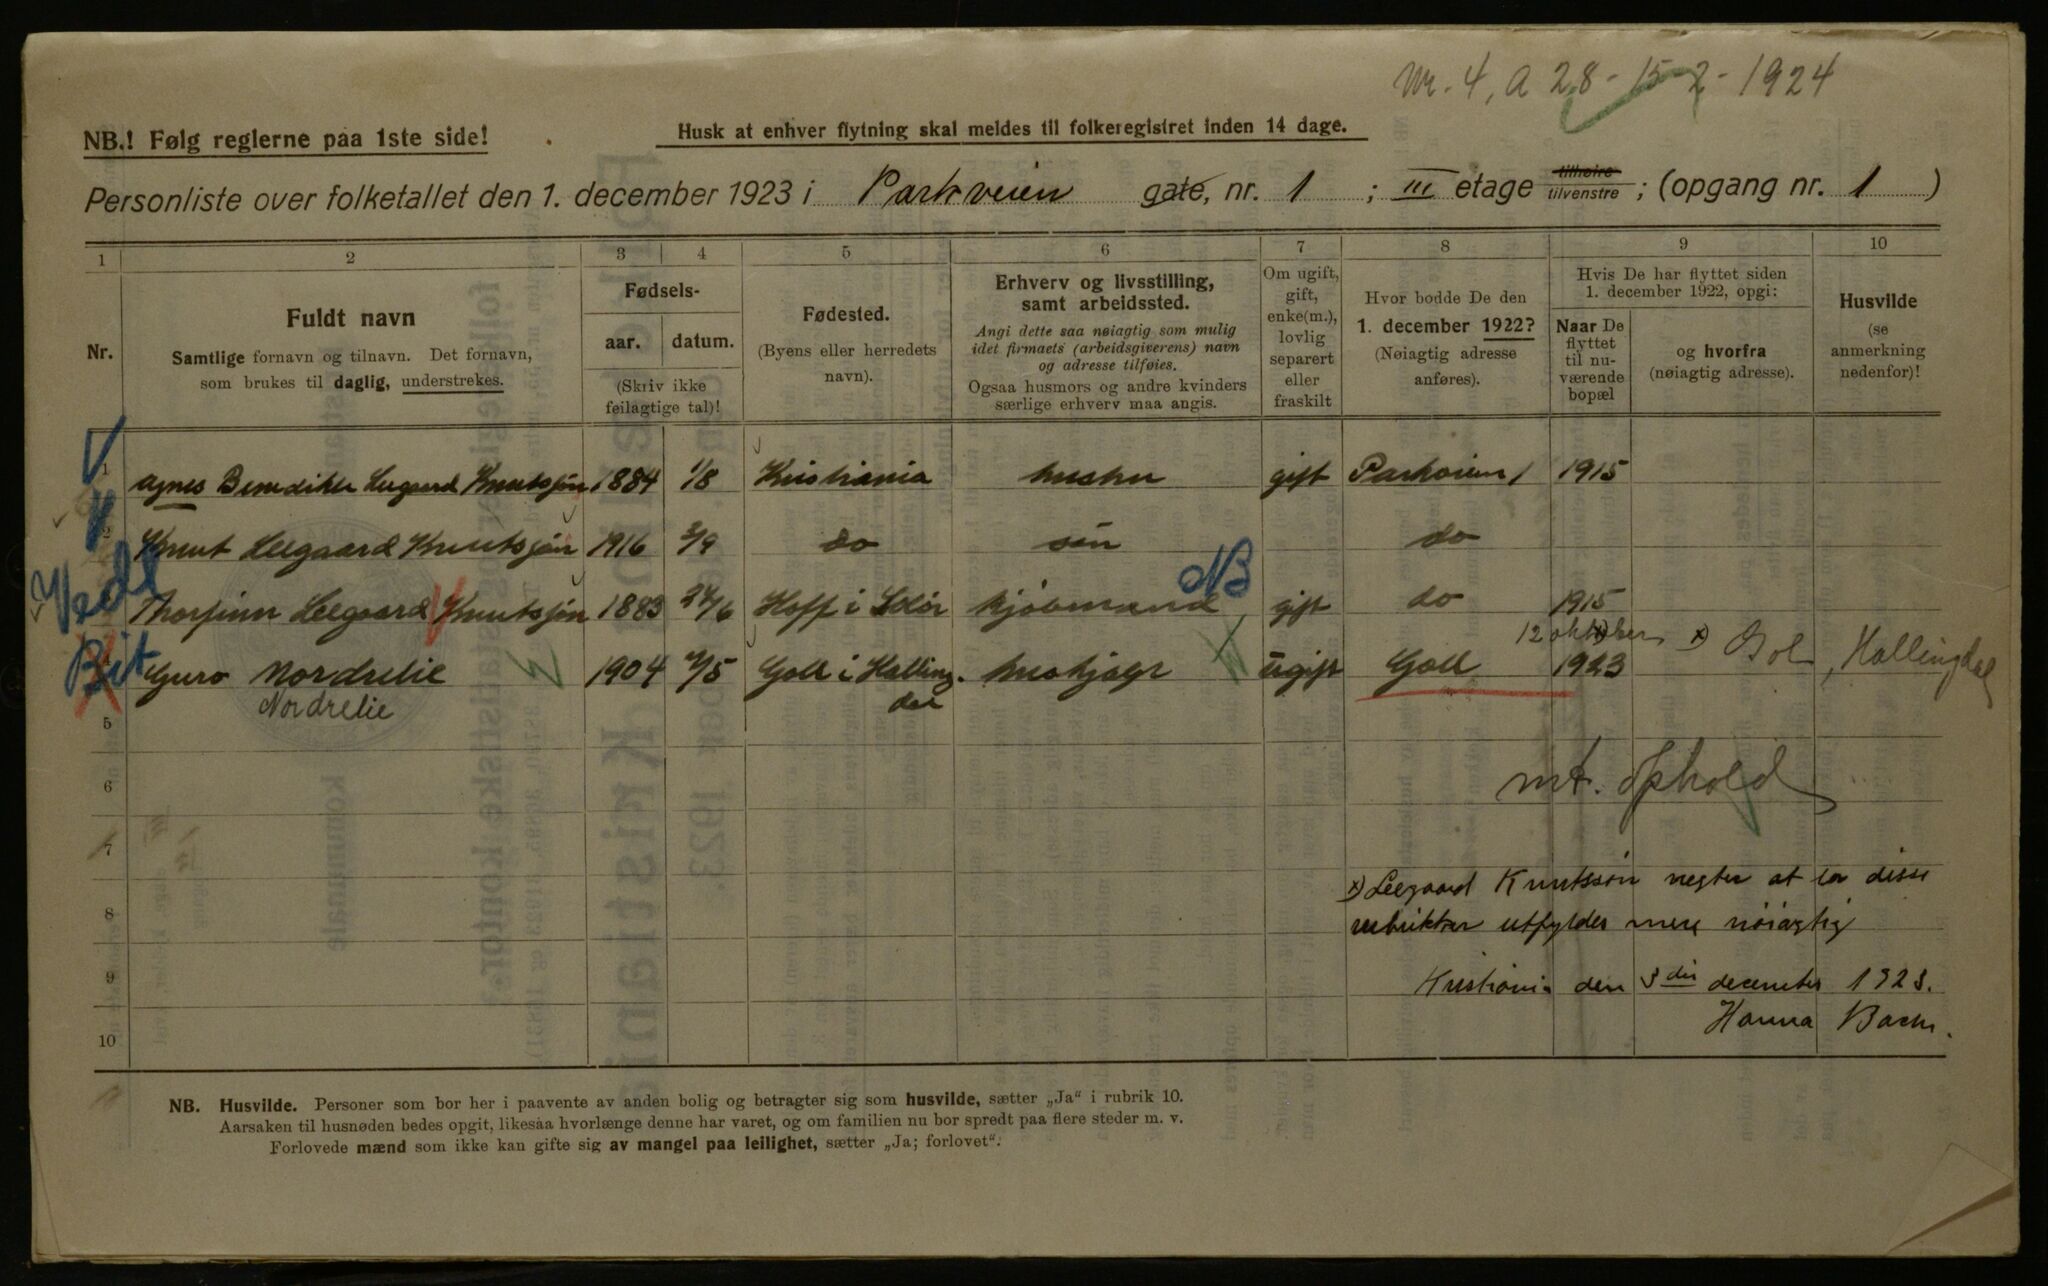 Nr. 4, A 28 - 15 - 2 - 1924
NB.! Følg reglerne paa 1ste side!
Husk at enhver flytning skal meldes til folkeregistret inden 14 dage.
Personliste over folketallet den 1. december 1923 i Parkveien gate, nr. 1 ; III etage tilhøire tilvenstre ; (opgang nr. 1 )
1 2 3 4 5 6 7 8 9 10
Nr.
Fuldt navn
Samtlige fornavn og tilnavn. Det fornavn,
som brukes til daglig, understrekes.
Fødsels-
aar. datum.
(Skriv ikke
feilagtige tal)!
Fødested.
(Byens eller herredets
navn).
Erhverv og livsstilling,
samt arbeidssted.
Angi dette saa nøiagtig som mulig
idet firmaets (arbeidsgiverens) navn
og adresse tilføies.
Ogsaa husmors og andre kvinders
særlige erhverv maa angis.
Om ugift,
gift,
enke(m.),
lovlig
separert
eller
fraskilt
Hvor bodde De den
1. december 1922?
(Nøiagtig adresse
anføres).
Hvis De har flyttet siden
1. december 1922, opgi:
Naar De
flyttet
til nu-
værende
bopæl
og hvorfra
(nøiagtig adresse).
Husvilde
(se
anmerkning
nedenfor)!
V
1 Agnes Benedikte Leegaard Knutsjøn 1884 1/8 Kristiania hustru gift Parkveien 1 1915
H
2 Knut Leegaard Knutsjøn 1916 2/9 do søn do
NB
Thorfinn Leegaard Knutsjøn 1883 24/6 Hoff i Solør kjøbmand gift do 1915
12 oktober
Guro Nordrelie 1904 Goll i Halling. hushjælp ugift Goll 1923 x) Gol, Hallingdal
Nordrelie dal
5
6 mt. Ophold
7
x) Leegaard Knutssøn negter at la disse
8 rubrikker utfyldes mere nøiagtig
9 Kristiania den 3die december 1923.
Hanna
10
NB. Husvilde. Personer som bor her i paavente av anden bolig og betragter sig som husvilde, sætter „Ja“ i rubrik 10.
Aarsaken til husnøden bedes opgit, likesaa hvorlænge denne har varet, og om familien nu bor spredt paa flere steder m. v.
Forlovede mænd som ikke kan gifte sig av mangel paa leilighet, sætter „Ja; forlovet“.